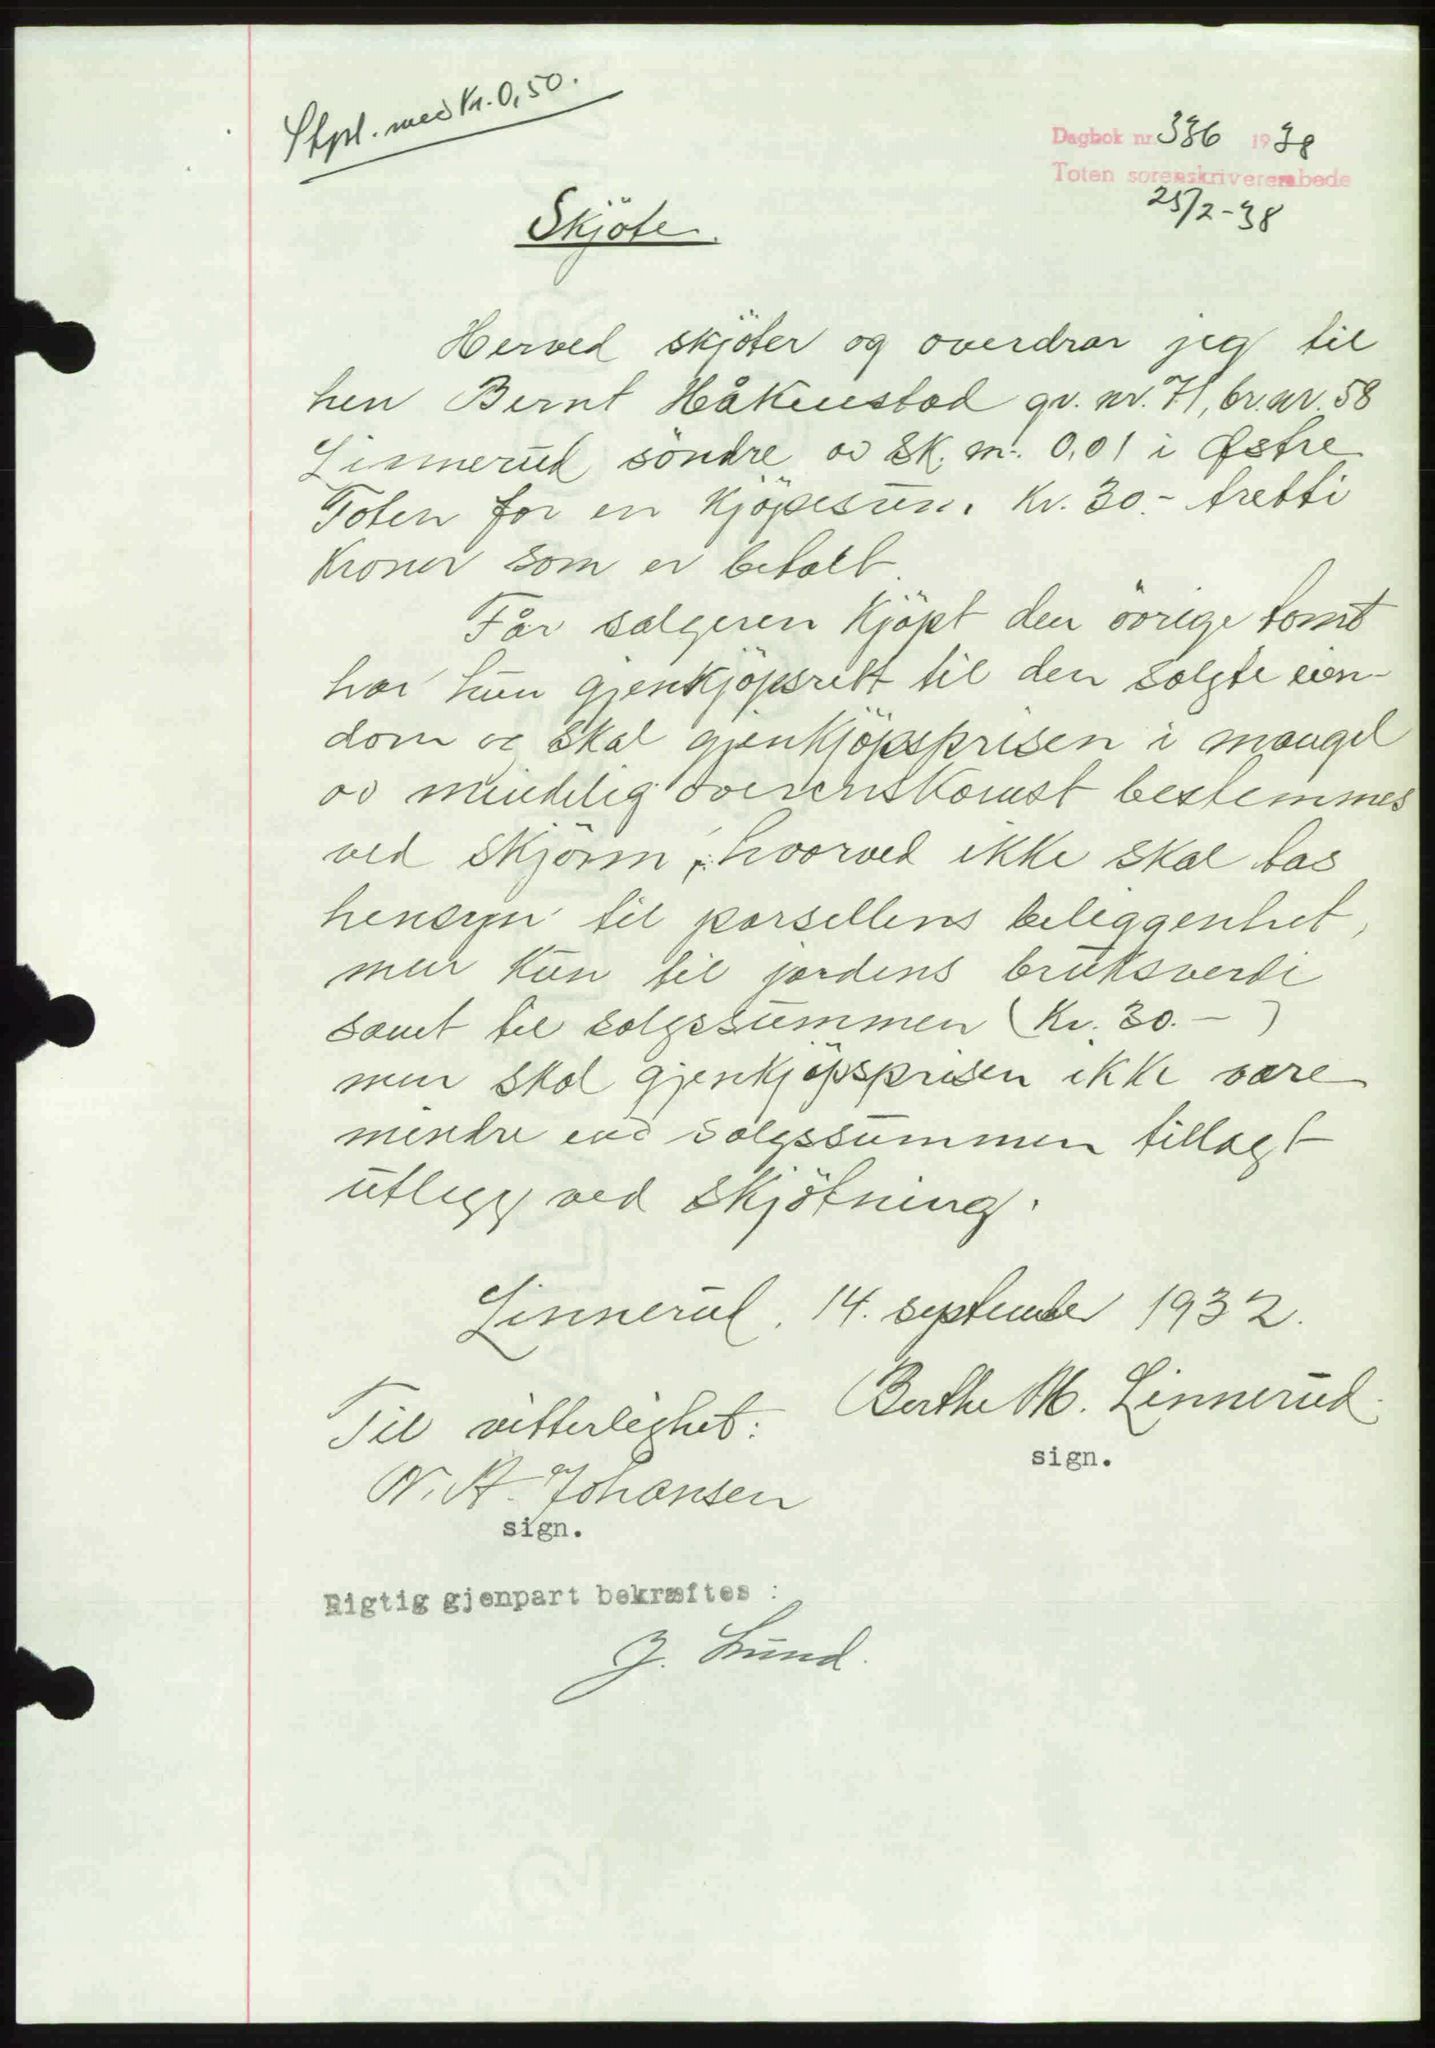 Stpl. med Kr. 0,50.
Dagbok nr. 336 1938
Toten sorenskriverembede
25/2-38
Skjöte.
Herved skjöter og overdrar jeg til
herr Bernt Håkenstad gr. nr. 71, br. nr. 58
Linnerud söndre av sk. m. 0,01 i Østre
Toten for en kjöpesum. Kr. 30.- tretti
kroner som er betalt.
Får selgeren kjöpt den övrige tomt
har hun gjenkjöpsrett til den solgte eien-
dom og skal gjenkjöpsprisen i mangel
av mindelig overenskomst bestemmes
ved skjönn, hvorved ikke skal tas
hensyn til parsellens beliggenhet,
men kun til jordens bruksverdi
samt til salgssummen (Kr. 30.-)
men skal gjenkjöpsprisen ikke være
mindre end salgssummen tillagt
utlegg ved skjötning.
Linnerud, 14. september 1932.
Berthe M. Linnerud.
sign.
Til vitterlighet:
N. A. Johansen
sign.
Rigtig gjenpart bekræftes:
J. Lund.